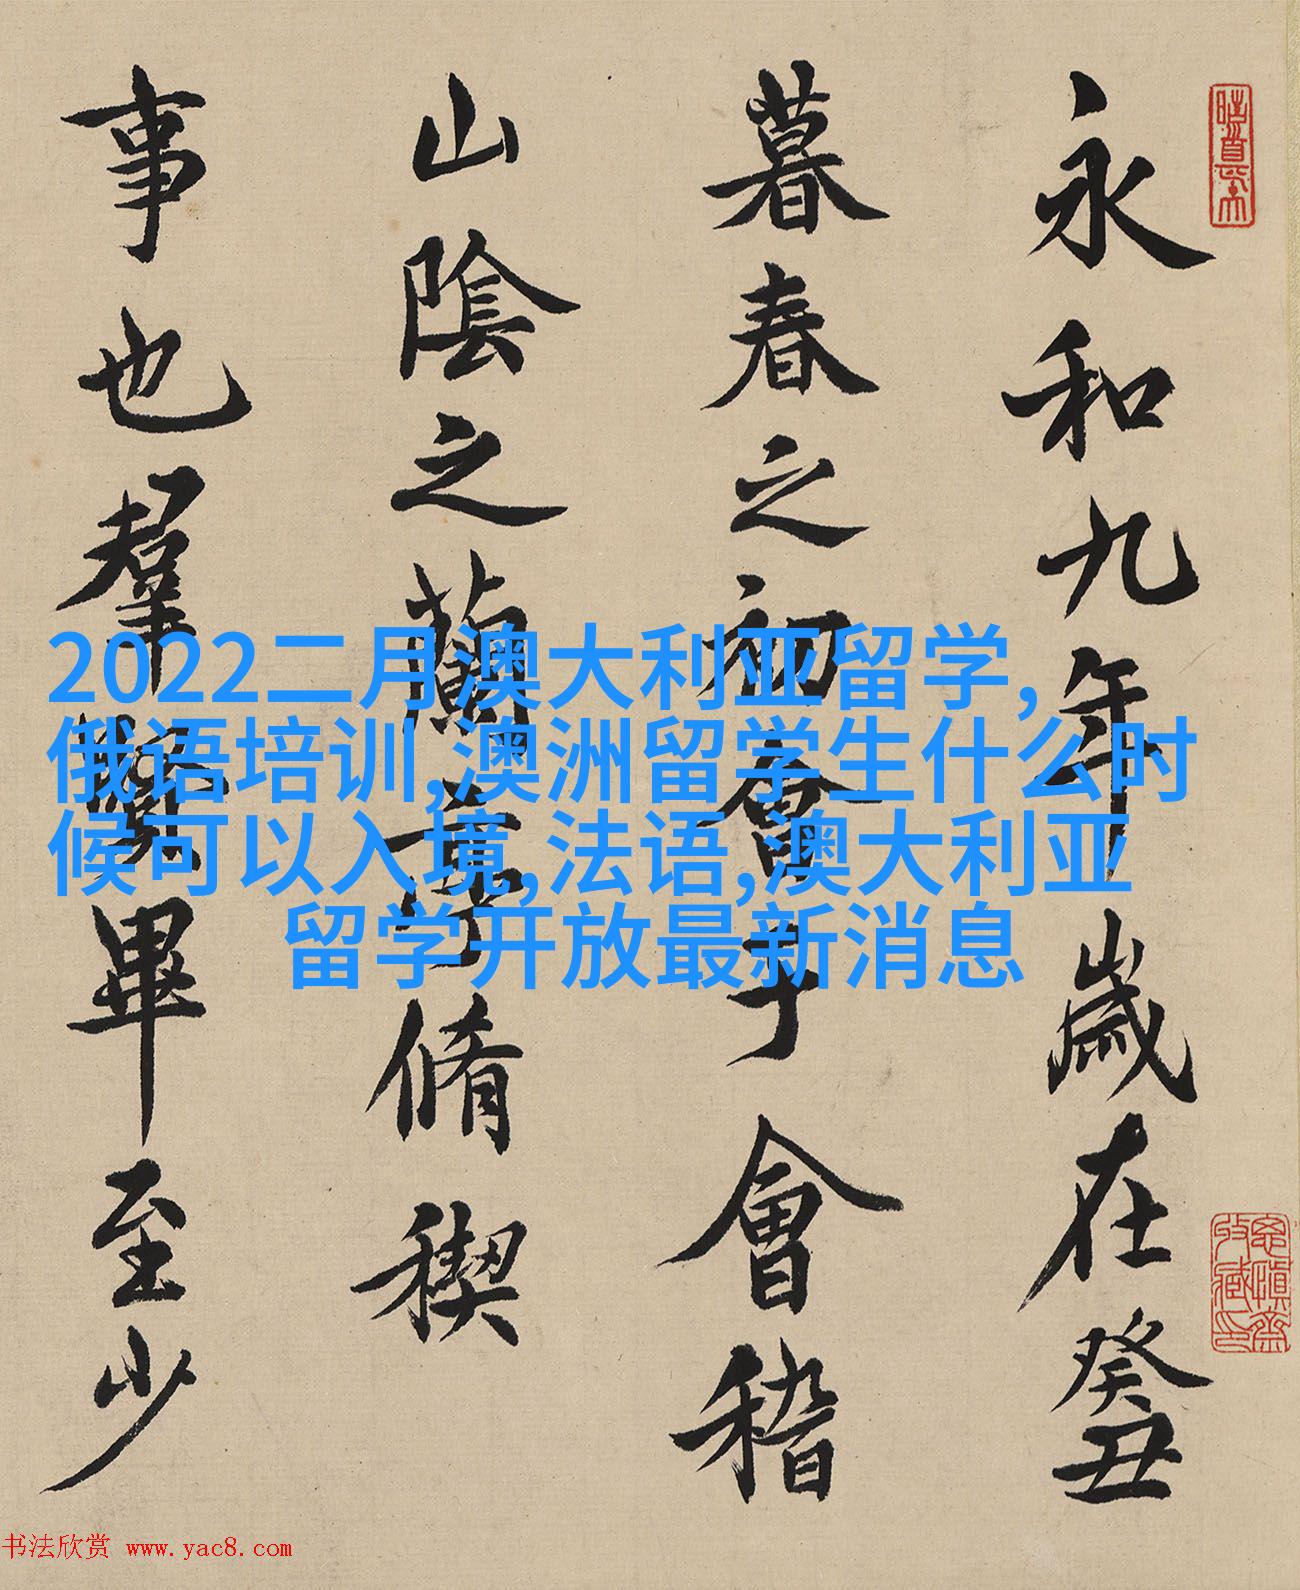 永和九年歲在癸丑
暮春之初會于會稽
山陰之蘭亭脩稧
事也羣賢畢至少
2022二月澳大利亚留学,
俄语培训,澳洲留学生什么时
候可以入境,法语,澳大利亚
留学开放最新消息
书法欣赏 www.yac8.com